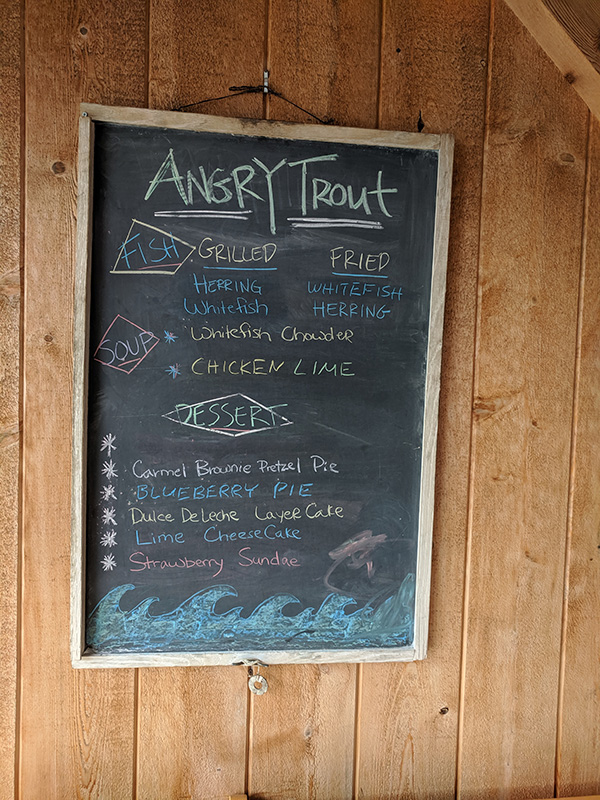 ANGRY TROUT
FISH GRILLED FRIED
HERRING WHITEFISH
Whitefish HERRING
SOUP * Whitefish Chowder
* CHICKEN LIME
DESSERT
*
* Carmel Brownie Pretzel Pie
* BLUEBERRY PIE
* Dulce DeLeche Layer Cake
* Lime CheeseCake
* Strawberry Sundae